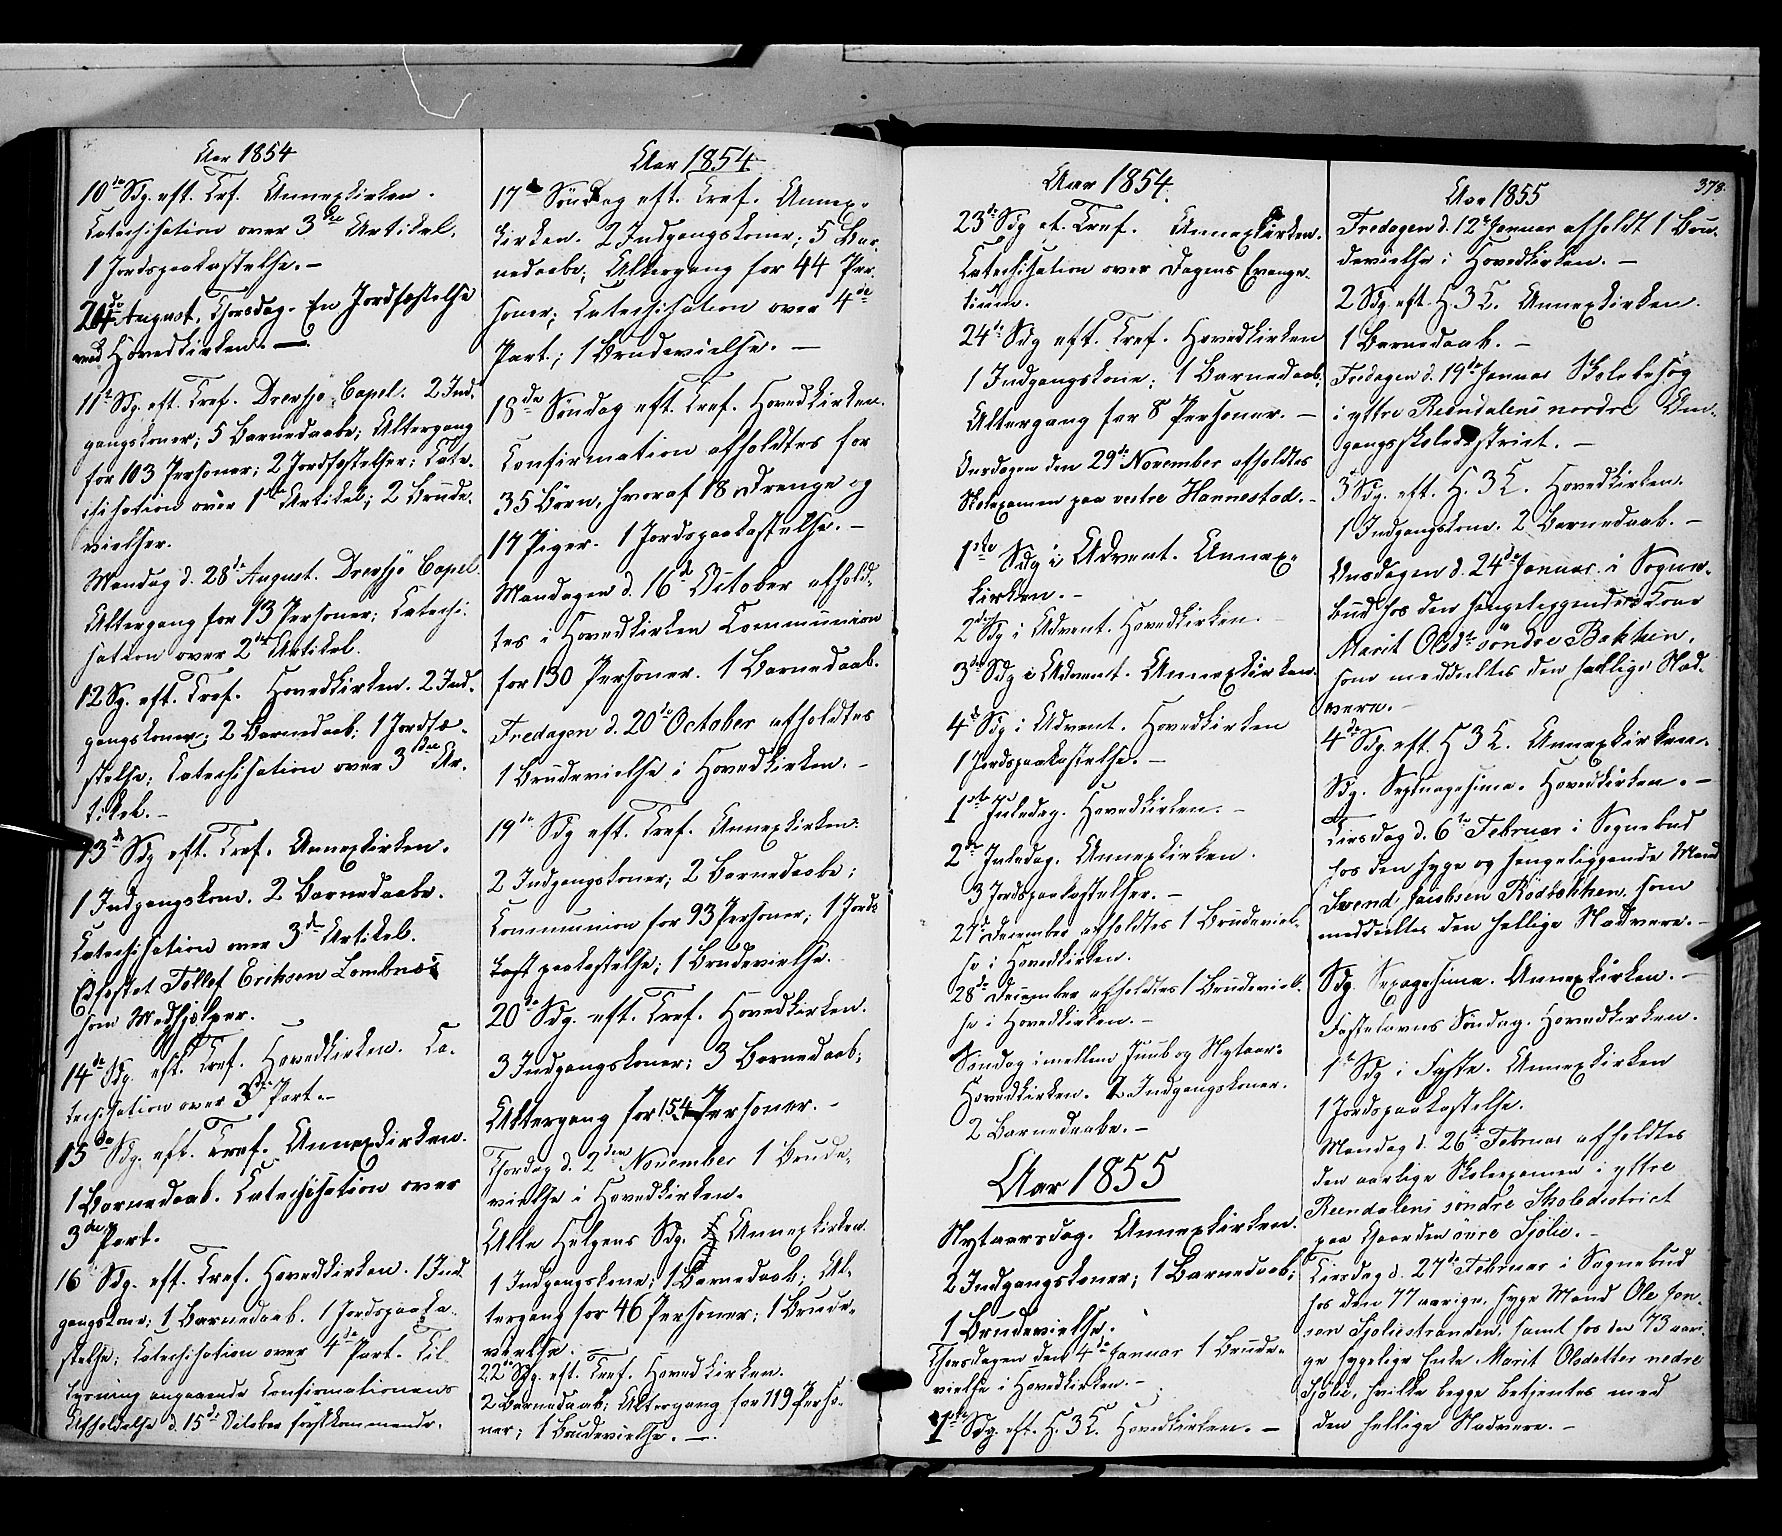 Aar 1854
10de Sdg. eft. Tref. Annexkirken.
Catechisation over 3die Artikel.
1 Jordspaakastelse. –
24de August, Thorsdag. En Jordfæstelse
ved Hovedkirken. —
11te Sdg. eft. Tref. Drevsjø Capel. 2 Ind-
gangskoner; 5 Barnedaabe; Altergang
for 103 Personer; 2 Jordfæstelser; Cate-
chisation over 1ste Artikel; 2 Brude-
vielser.
Mandag d. 28de August. Drevsjø Capel.
Altergang for 93 Personer; Catechi-
sation over 2den Artikel.
12 Sg. eft. Tref. Hovedkirken. 2 Ind-
gangskoner; 2 Barnedaab; 1 Jordfæ-
stelse; Catechisation over 3die Ar-
tikel. –
13de Sdg eft. Tref. Annexkirken.
1 Indgangskone. 2 Barnedaabe.
Catechisation over 3die Artikel.
Edfæstet Tollef Eriksen Lombnæs
som Medhjælper.
14de Sdg. eft. Tref. Hovedkirken. Ca-
techisation over 3die Part. –
15de Sdg. eft. Tref. Annexkirken.
1 Barnedaab. Catechisation over
3die Part.
16 Sdg. eft. Tref. Hovedkirken. 1 Ind-
gangskone; 1 Barnedaab. 1 Jordspaaka-
stelse; Catechisation over 4de Part. Til-
lysning angaaende Confirmationens
Afholdelse d. 15de October førstkommende.
Aar 1854
17de Søndag eft. Tref. Annex-
kirken. 2 Indgangskoner; 5 Bar-
nedaabe; Altergang for 44 Per-
soner; Catechisation over 4de
Part.; 1 Brudevielse. –
18de Søndag eft. Tref. Hovedkirken.
Confirmation afholdtes for
35 Børn, hvoraf 18 Drenge og
17 Piger. 1 Jordspaakastelse. –
Mandagen d. 16de October afhold-
tes i Hovedkirken Communion
for 130 Personer. 1 Barnedaab.
Fredagen d. 20de October afholdtes
1 Brudevielse i Hovedkirken. –
19de Sdg eft. Tref. Annexkirken.
2 Indgangskoner; 2 Barnedaabe;
Communion for 93 Personer; 1 Jords-
kast paakastelse; 1 Brudevielse.
20de Sdg. eft. Tref. Hovedkirken.
3 Indgangskoner; 3 Barnedaab;
Altergang for 154 Personer. –
Thorsdag d. 2den November 1 Brude-
vielse i Hovedkirken.
Alle Helgens Sdg. Annexkirken.
1 Indgangskone; 1 Barnedaab; Al-
tergang for 46 Personer; 1 Brude-
vielse.
22de Sdg. eft. Tref. Hovedkirken.
2 Barnedaab; Altergang for 119 Perso-
ner; 1 Brudevielse. —
Aar 1854.
23de Sdg et. Tref. Annexkirken.
Catechisation over Dagens Evange-
lium.
24de Sdg eft. Tref. Hovedkirken
1 Indgangskone; 1 Barnedaab;
Altergang for 8 Personer. –
Onsdagen den 29de November afholdtes
Skolexamen paa vestre Hannestad. –
1ste Sdg i Advent. Annex-
kirken. –
2den Sdg i Advent. Hovedkirken.
3die Sdg i Advent. Annexkirken.
4de Sdg i Advent. Hovedkirken
1 Jordspaakastelse. –
1ste Juledag. Hovedkirken. –
2den Juledag. Annexkirken.
3 Jordspaakastelser. –
27de December afholdtes 1 Brudeviel-
se i Hovedkirken.
28de December afholdtes 1 Brudeviel-
se i Hovedkirken. –
Søndag imellem Juul og Nytaar.
Hovedkirken. 2 Indgangskoner.
2 Barnedaabe. –
Aar 1855
Nytaarsdag. Annexkirken.
2 Indgangskoner; 1 Barnedaab;
1 Brudevielse.
Thorsdagen den 4de Januar 1 Brude-
vielse i Hovedkirken. –
1ste Sdg. eft. H. 3 K. Hovedkirken. –
378.
Aar 1855
Fredagen d. 12te Januar afholdt 1 Bru-
devielse i Hovedkirken. –
2 Sdg. eft. H. 3 K. Annexkirken.
1 Barnedaab. –
Fredagen d. 19de Januar Skolebesøg
i yttre Rendalens nordre Om-
gangsskoledistrict. –
3 Sdg. eft. H. 3 K. Hovedkirken.
1 Indgangskone. 2 Barnedaab. –
Onsdagen d. 24de Januar i Sogne-
bud hos den sengeliggende Kone
Marit Olsdtr søndre Bakken,
som meddeeltes den hellige Nad-
vere. –
4de Sdg. eft. H 3 K. Annexkirken.
Sdg. Septuagesima. Hovedkirken. –
Tirsdag d. 6te Februar i Sognebud
hos den syge og sengeliggende Mand
Svend Jacobsen Rødsbakken, som
meddeeltes den hellige Nadvere. –
Sdg. Sexagesima. Annexkirken. –
Fastelavns Søndag. Hovedkirken.
1ste Sdg i Faste. Annexkirken
1 Jordspaakastelse.
Mandag d. 26de Februar afholdtes
den aarlige Skolexamen i yttre
Rendalens søndre Skoledistrict
paa Gaarden øvre Sjølie. –
Tirsdag d. 27de Februar i Sognebud
hos den 77 aarige, syge Mand Ole Jon-
sen Sjøliestranden, samt hos den 73 aari-
ge sygelige Enke Marit Olsdatter nedre
Sjølie, hvilke begge betjentes med
den hellige Nadvere. –